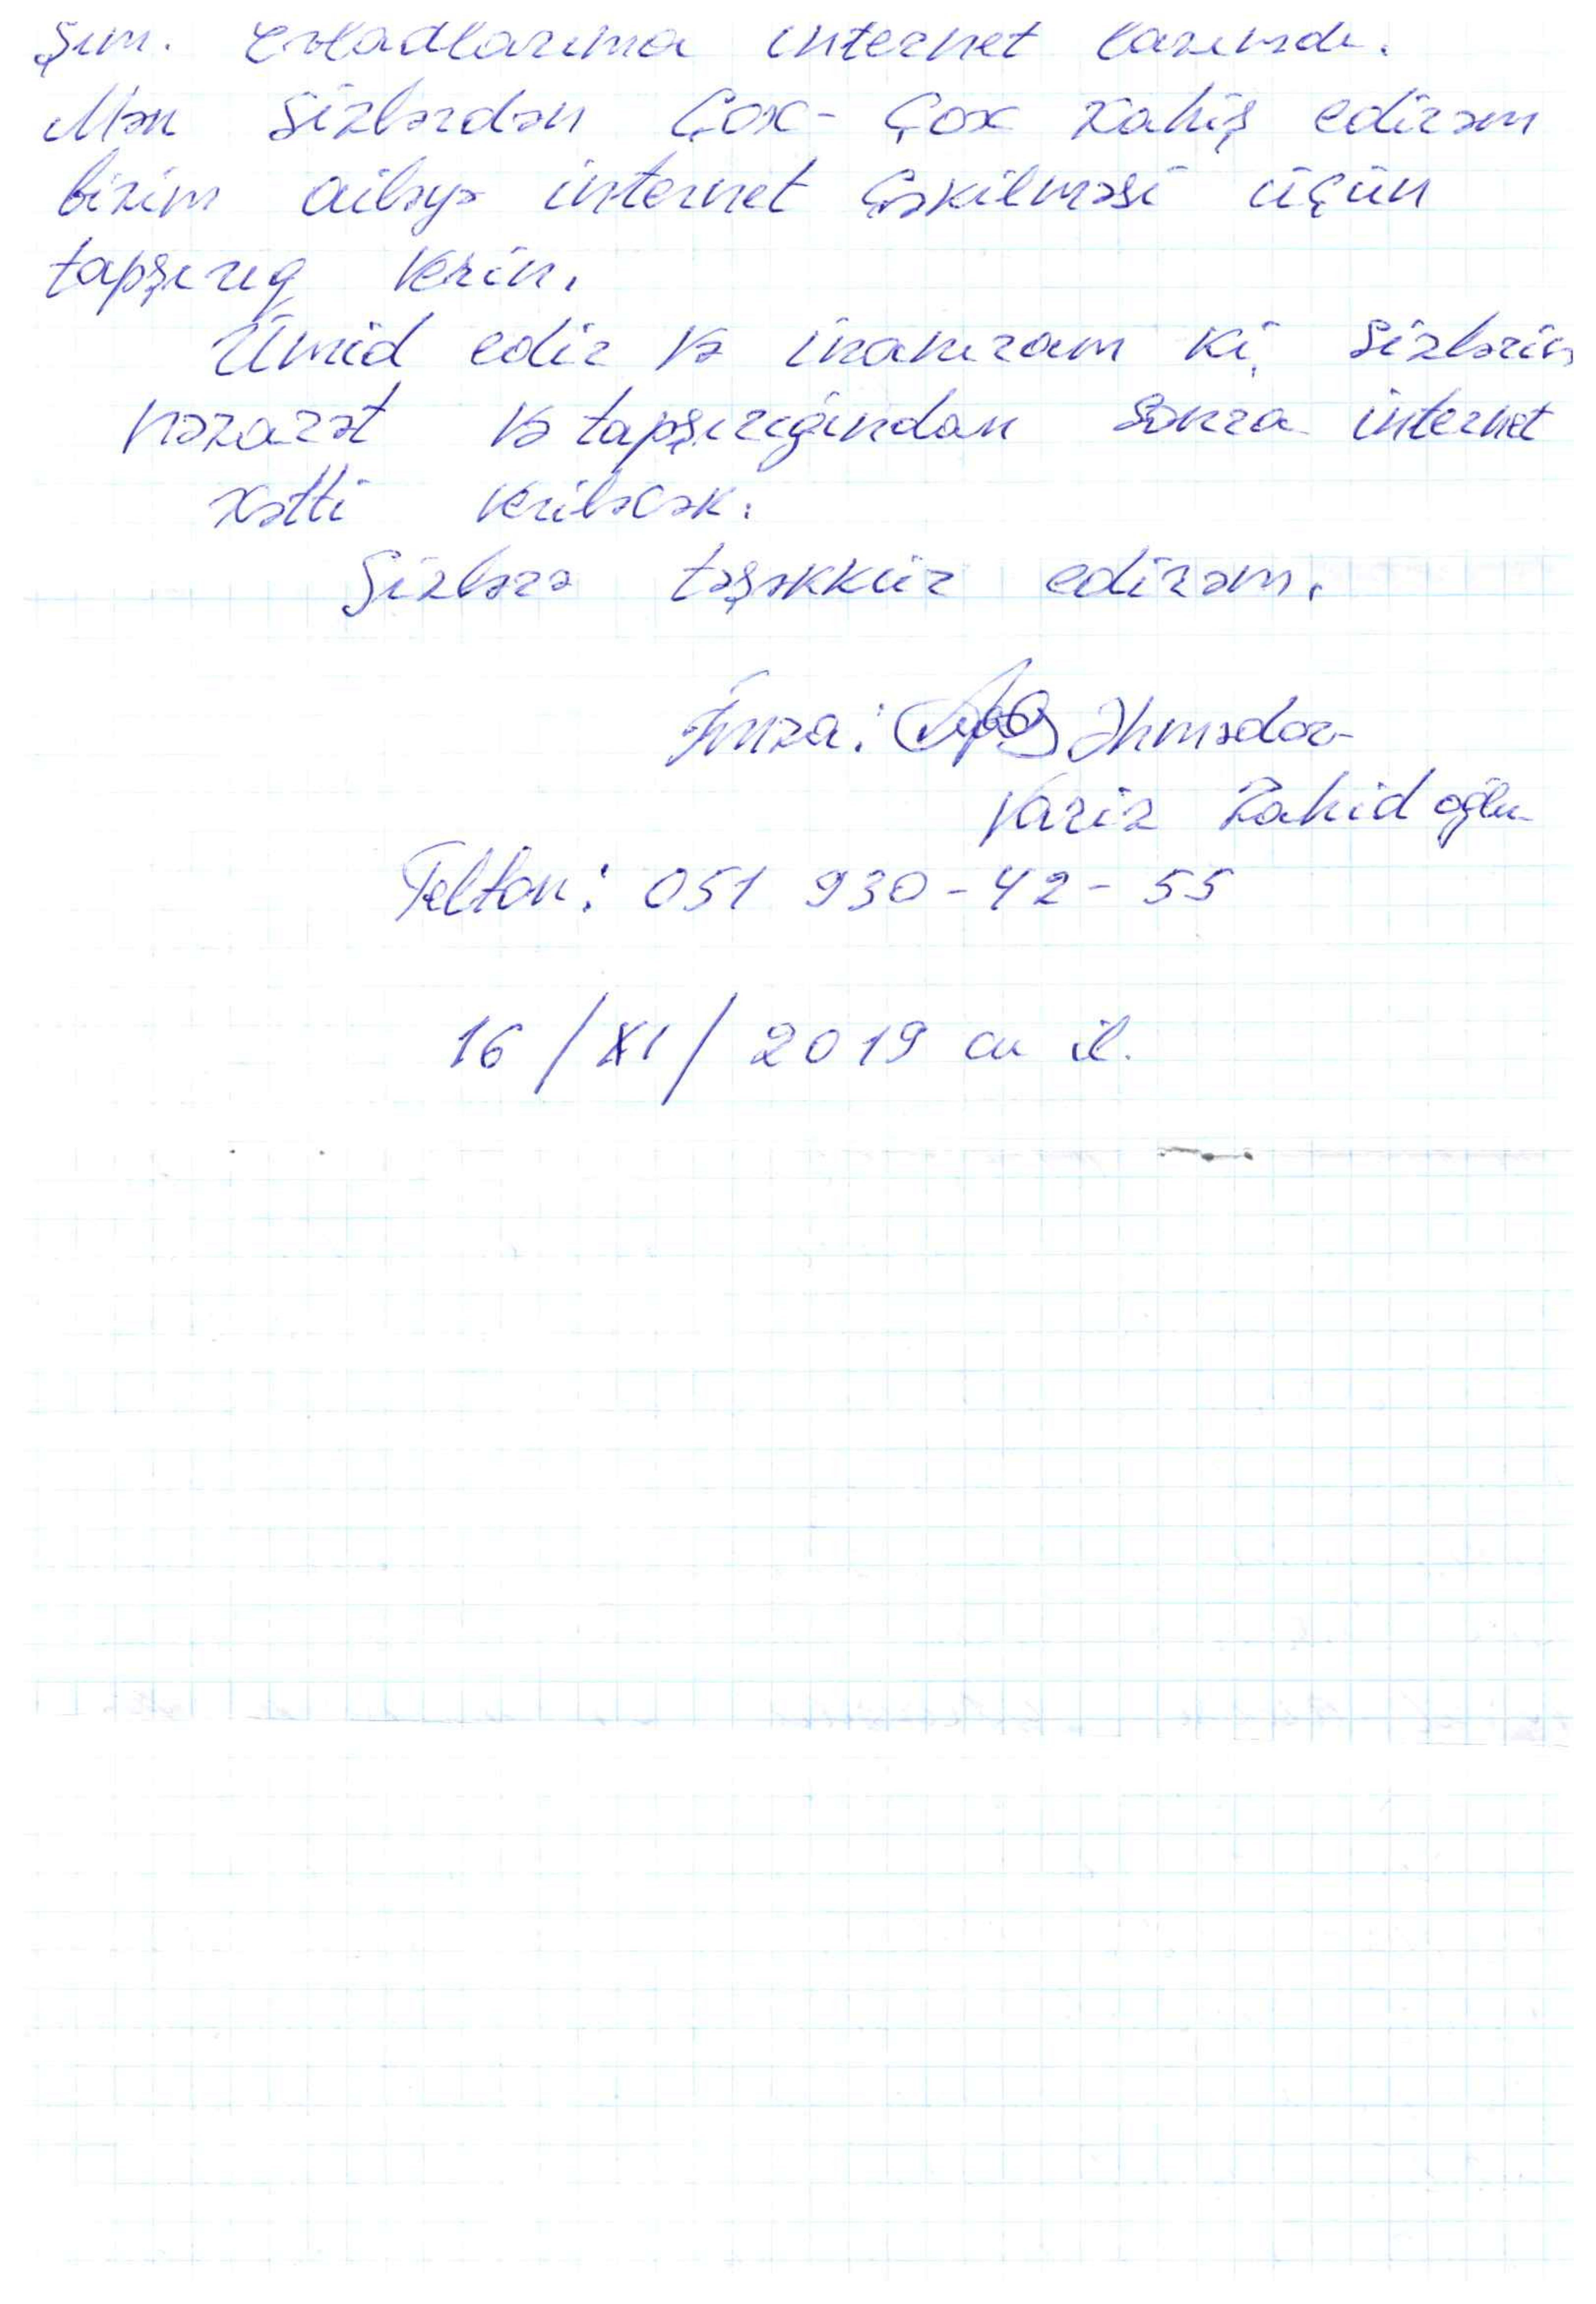 şım. Evladlarıma internet lazımdı.
Mən Sizlərdən Çox-Çox xahiş edirəm
bizim ailəyə internet Çəkilməsi üçün
tapşırıq verin.
Ümid edir və inanıram ki, Sizlərin
nəzarət və tapşırığından sonra internet
xətti veriləcək.
Sizlərə təşəkkür edirəm.
İmza: Əhmədov
Variz Zahid oğlu
Telfon: 051 930-42-55
16/XI/2019 cu il.